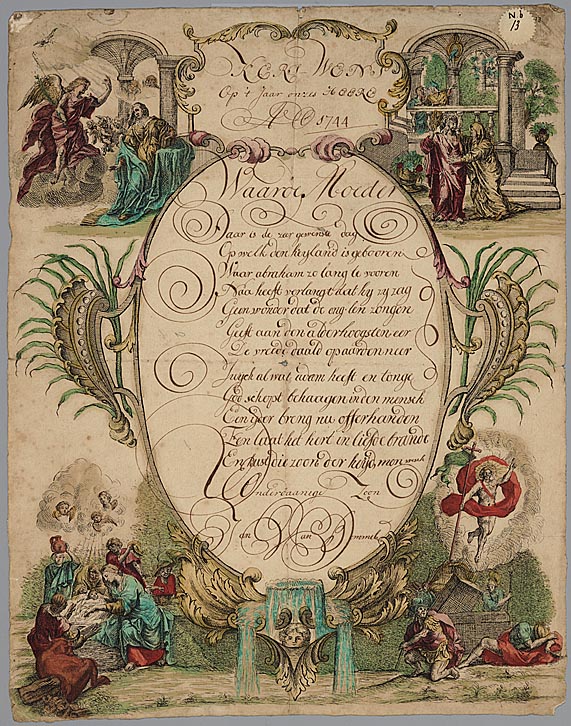 N b
13
KERS WENS
Op 't Jaar onzes HEERE
Ao 1744
Waarde Moeder
Daar is de zer gewenste dag
Op welk den heyland is gebooren
Waar abraham zo lang te vooren
Naa heeft verlangt dat hy zy zag
Geen wonder dat de eng'len zongen
Geeft aan den alderhoogsten eer
De vreede daald op aarden neer
Juygt al wat adam heeft en tonge
God schept behaagen in den mensch
Een ider breng nu offerhanden
En laat het hert in liefde brande
En kust die zoon der
Onderdaanige Zoon
Jan Van Bommel